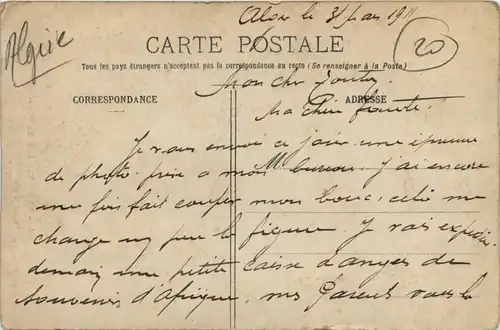 Algérie
Alger le 31 mars 1911
20
CARTE POSTALE
Tous les pays étrangers n'acceptent pas la correspondance au recto (Se renseigner à la Poste)
Mon cher
CORRESPONDANCE
ADRESSE
Ma chère
Je vous envoie ce jour une épreuve
de photo prise a mon bureau. J'ai encore
une fois fait couper mon bouc, cela me
change un peu la figure. Je vais expédier
demain une petite caisse d'anges de
souvenir d'Afrique, vos Parents